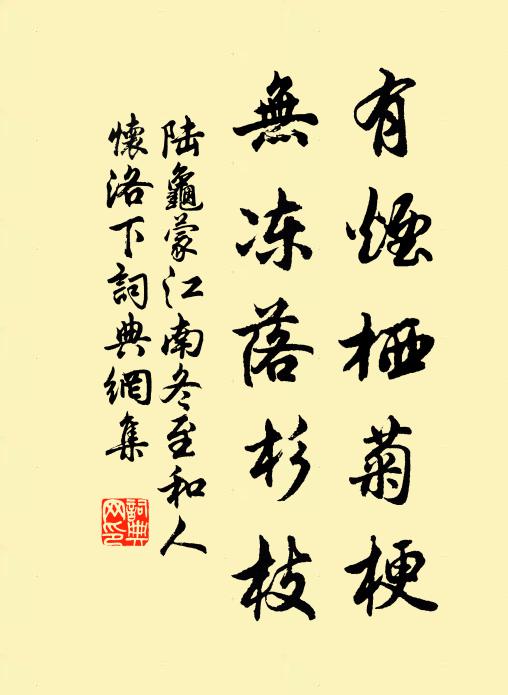 有煙栖菊梗
無冻落杉枝
陆龜蒙江南冬至和人
懷洛下詞典網集
詞典网印